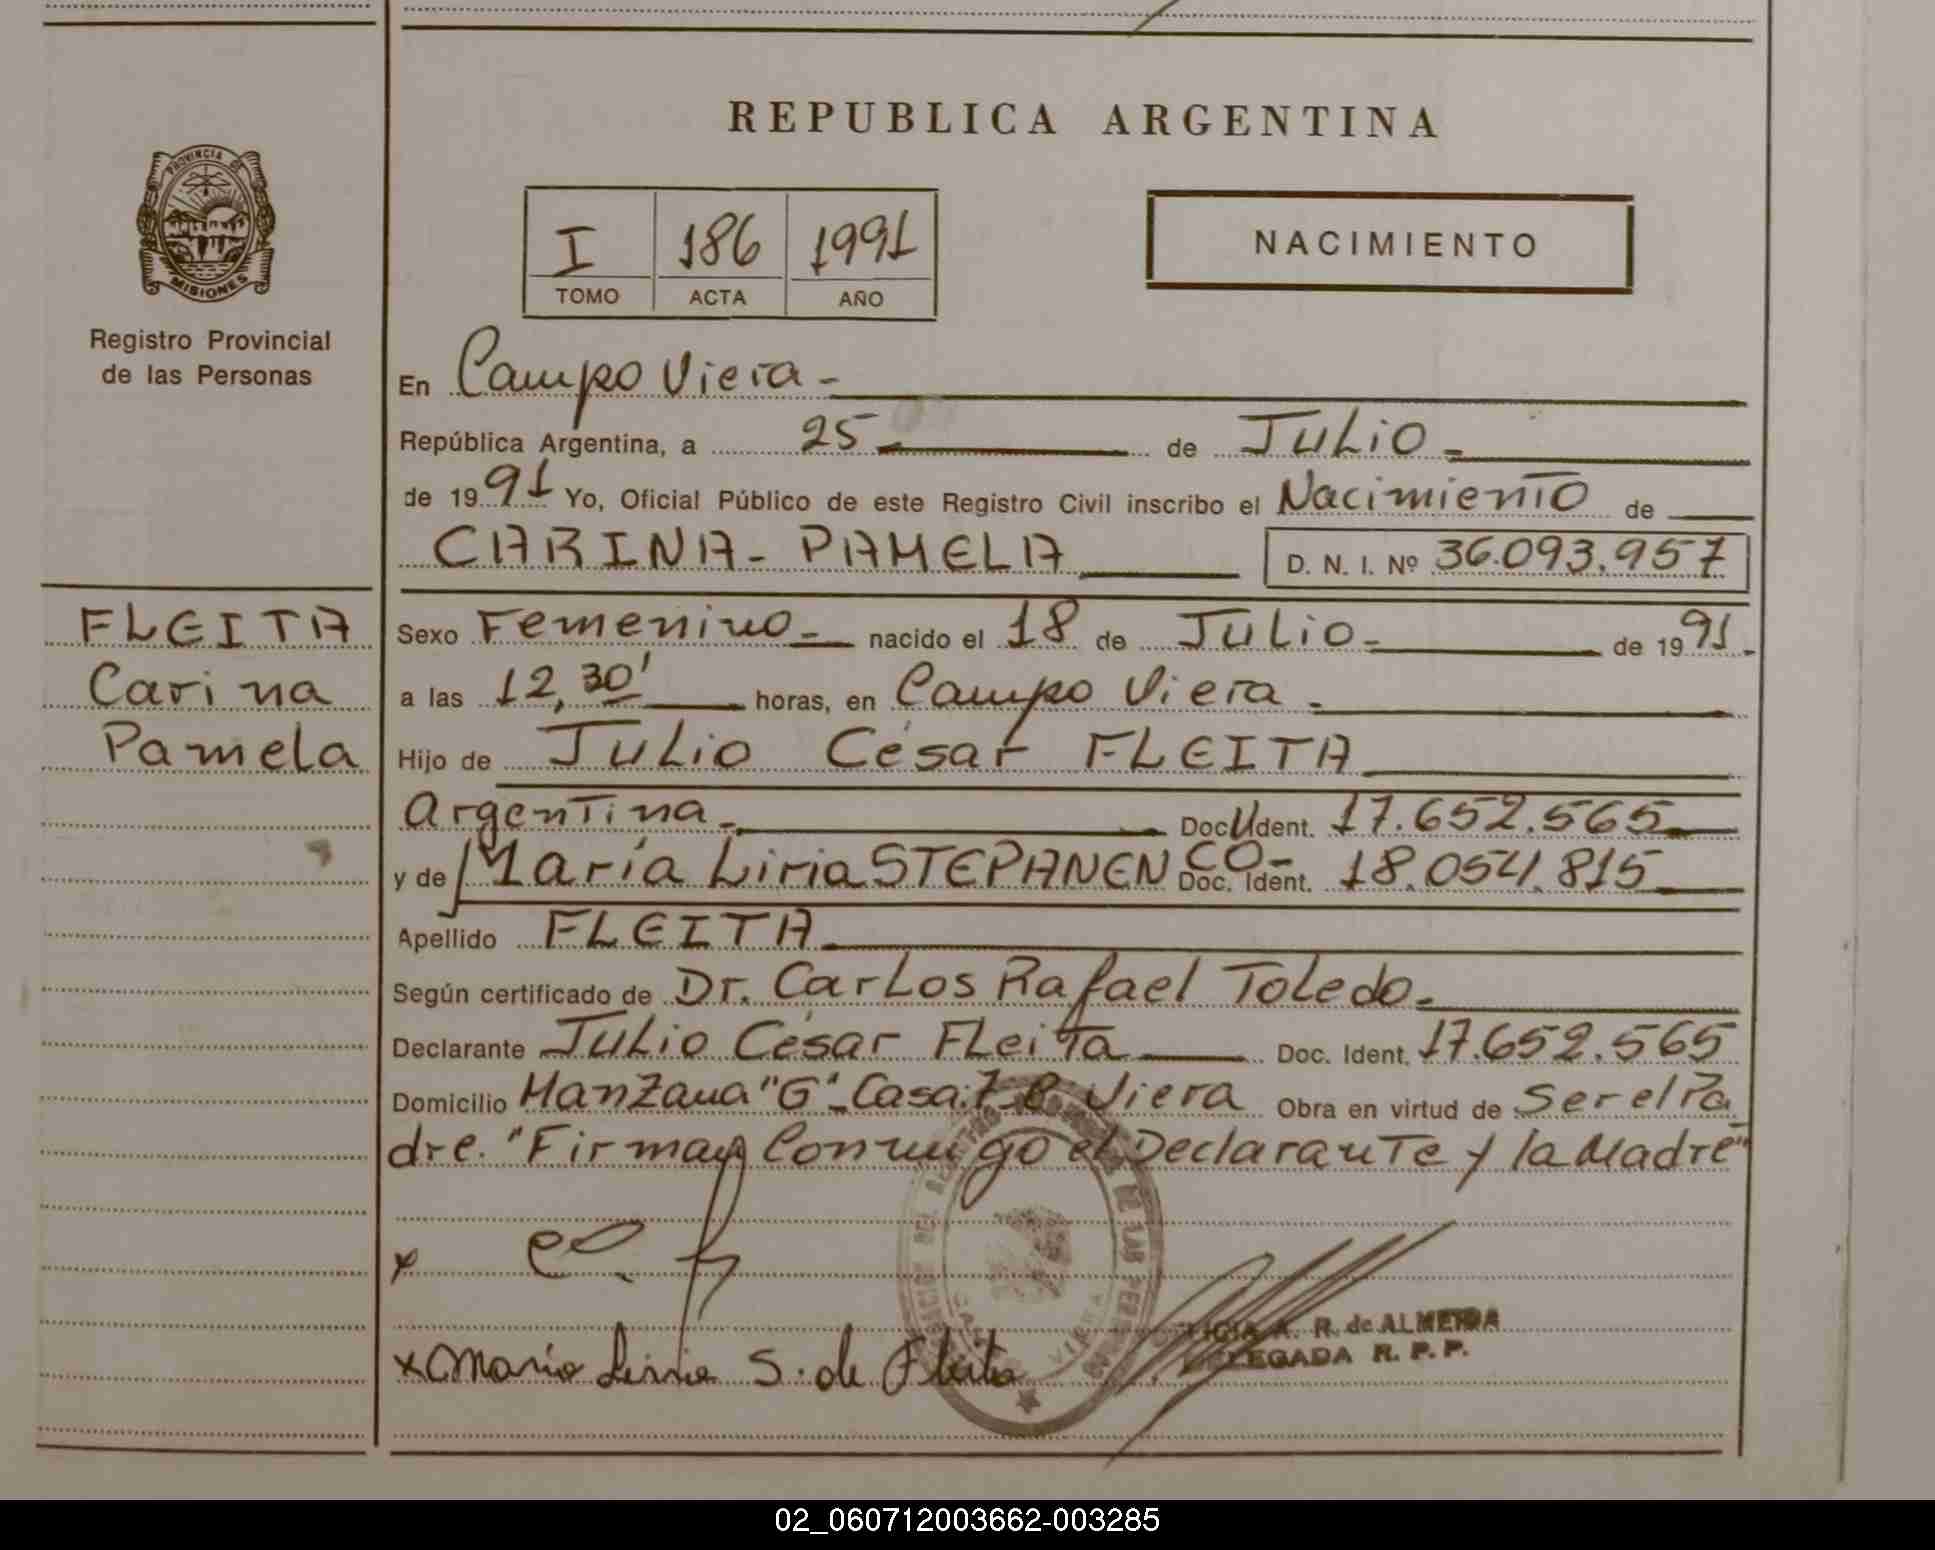 REPUBLICA ARGENTINA
PROVINCIA DE
MISIONES
Registro Provincial
de las Personas
I 186 1991
TOMO ACTA AÑO
NACIMIENTO
En Campo Viera -
República Argentina, a 25 de JULIO
de 1991 Yo, Oficial Público de este Registro Civil inscribo el Nacimiento de
CARINA - PAMELA D. N. I. Nº 36.093.957
FLEITA
Carina
Pamela
Sexo Femenino nacido el 18 de JULIO de 1991
a las 12,30' horas, en Campo Viera
Hijo de JULIO César FLEITA
Argentina Doc. Ident. 17.652.565
y de María Liria STEPANENCO Doc. Ident. 18.054.815
Apellido FLEITA
Según certificado de Dr. Carlos Rafael Toledo
Declarante JULIO César FLeita Doc. Ident. 17.652.565
Domicilio Manzana "G" Casa: 7 Viera Obra en virtud de Ser el Pa
dre. "Firman Conmigo el Declarante y la Madre"
x
x Maria Liria S. de Fleita
A. R. de ALMEIDA
DELEGADA R. P. P.
02_060712003662-003285